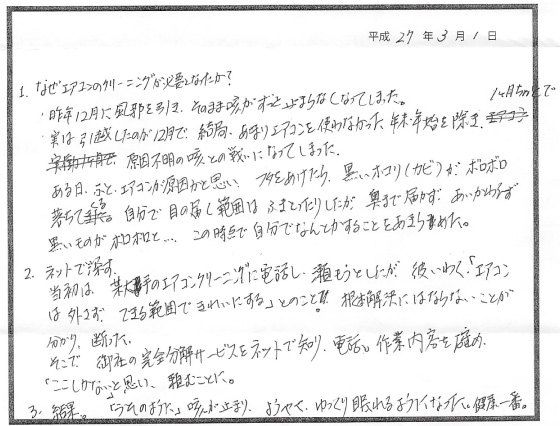 平成 27 年 3 月 1 日
1. なぜエアコンのクリーニングが必要となったか?
・昨年12月に風邪を引き、そのまま咳がずっと止まらなくなってしまった。
・実は引越したのが12月で、結局、あまりエアコンを使わなかった年末年始を除き、
原因不明の咳との戦いになってしまった。
ある日、ふと、エアコンが原因かと思い、フタをあけたら、黒いホコリ(カビ)が、ボロボロ
落ちてくる。自分で目の届く範囲はふきとったりしたが、奥まで届かず、あいかわらず
黒いものがボロボロと… この時点で自分でなんとかすることをあきらめた。
2. ネットで探す。
当初は、某大手のエアコンクリーニングに電話し、頼もうとしたが、彼いわく、「エアコン
は外さず、できる範囲できれいにする」とのこと。根本解決にはならないことが
分かり、断った。
そこで、御社の完全分解サービスをネットで知り、電話。作業内容を確め、
「ここしかない」と思い、頼むことに。
3. 結果。 「うそのように」咳が止まり、ようやく、ゆっくり眠れるようになった。健康一番。